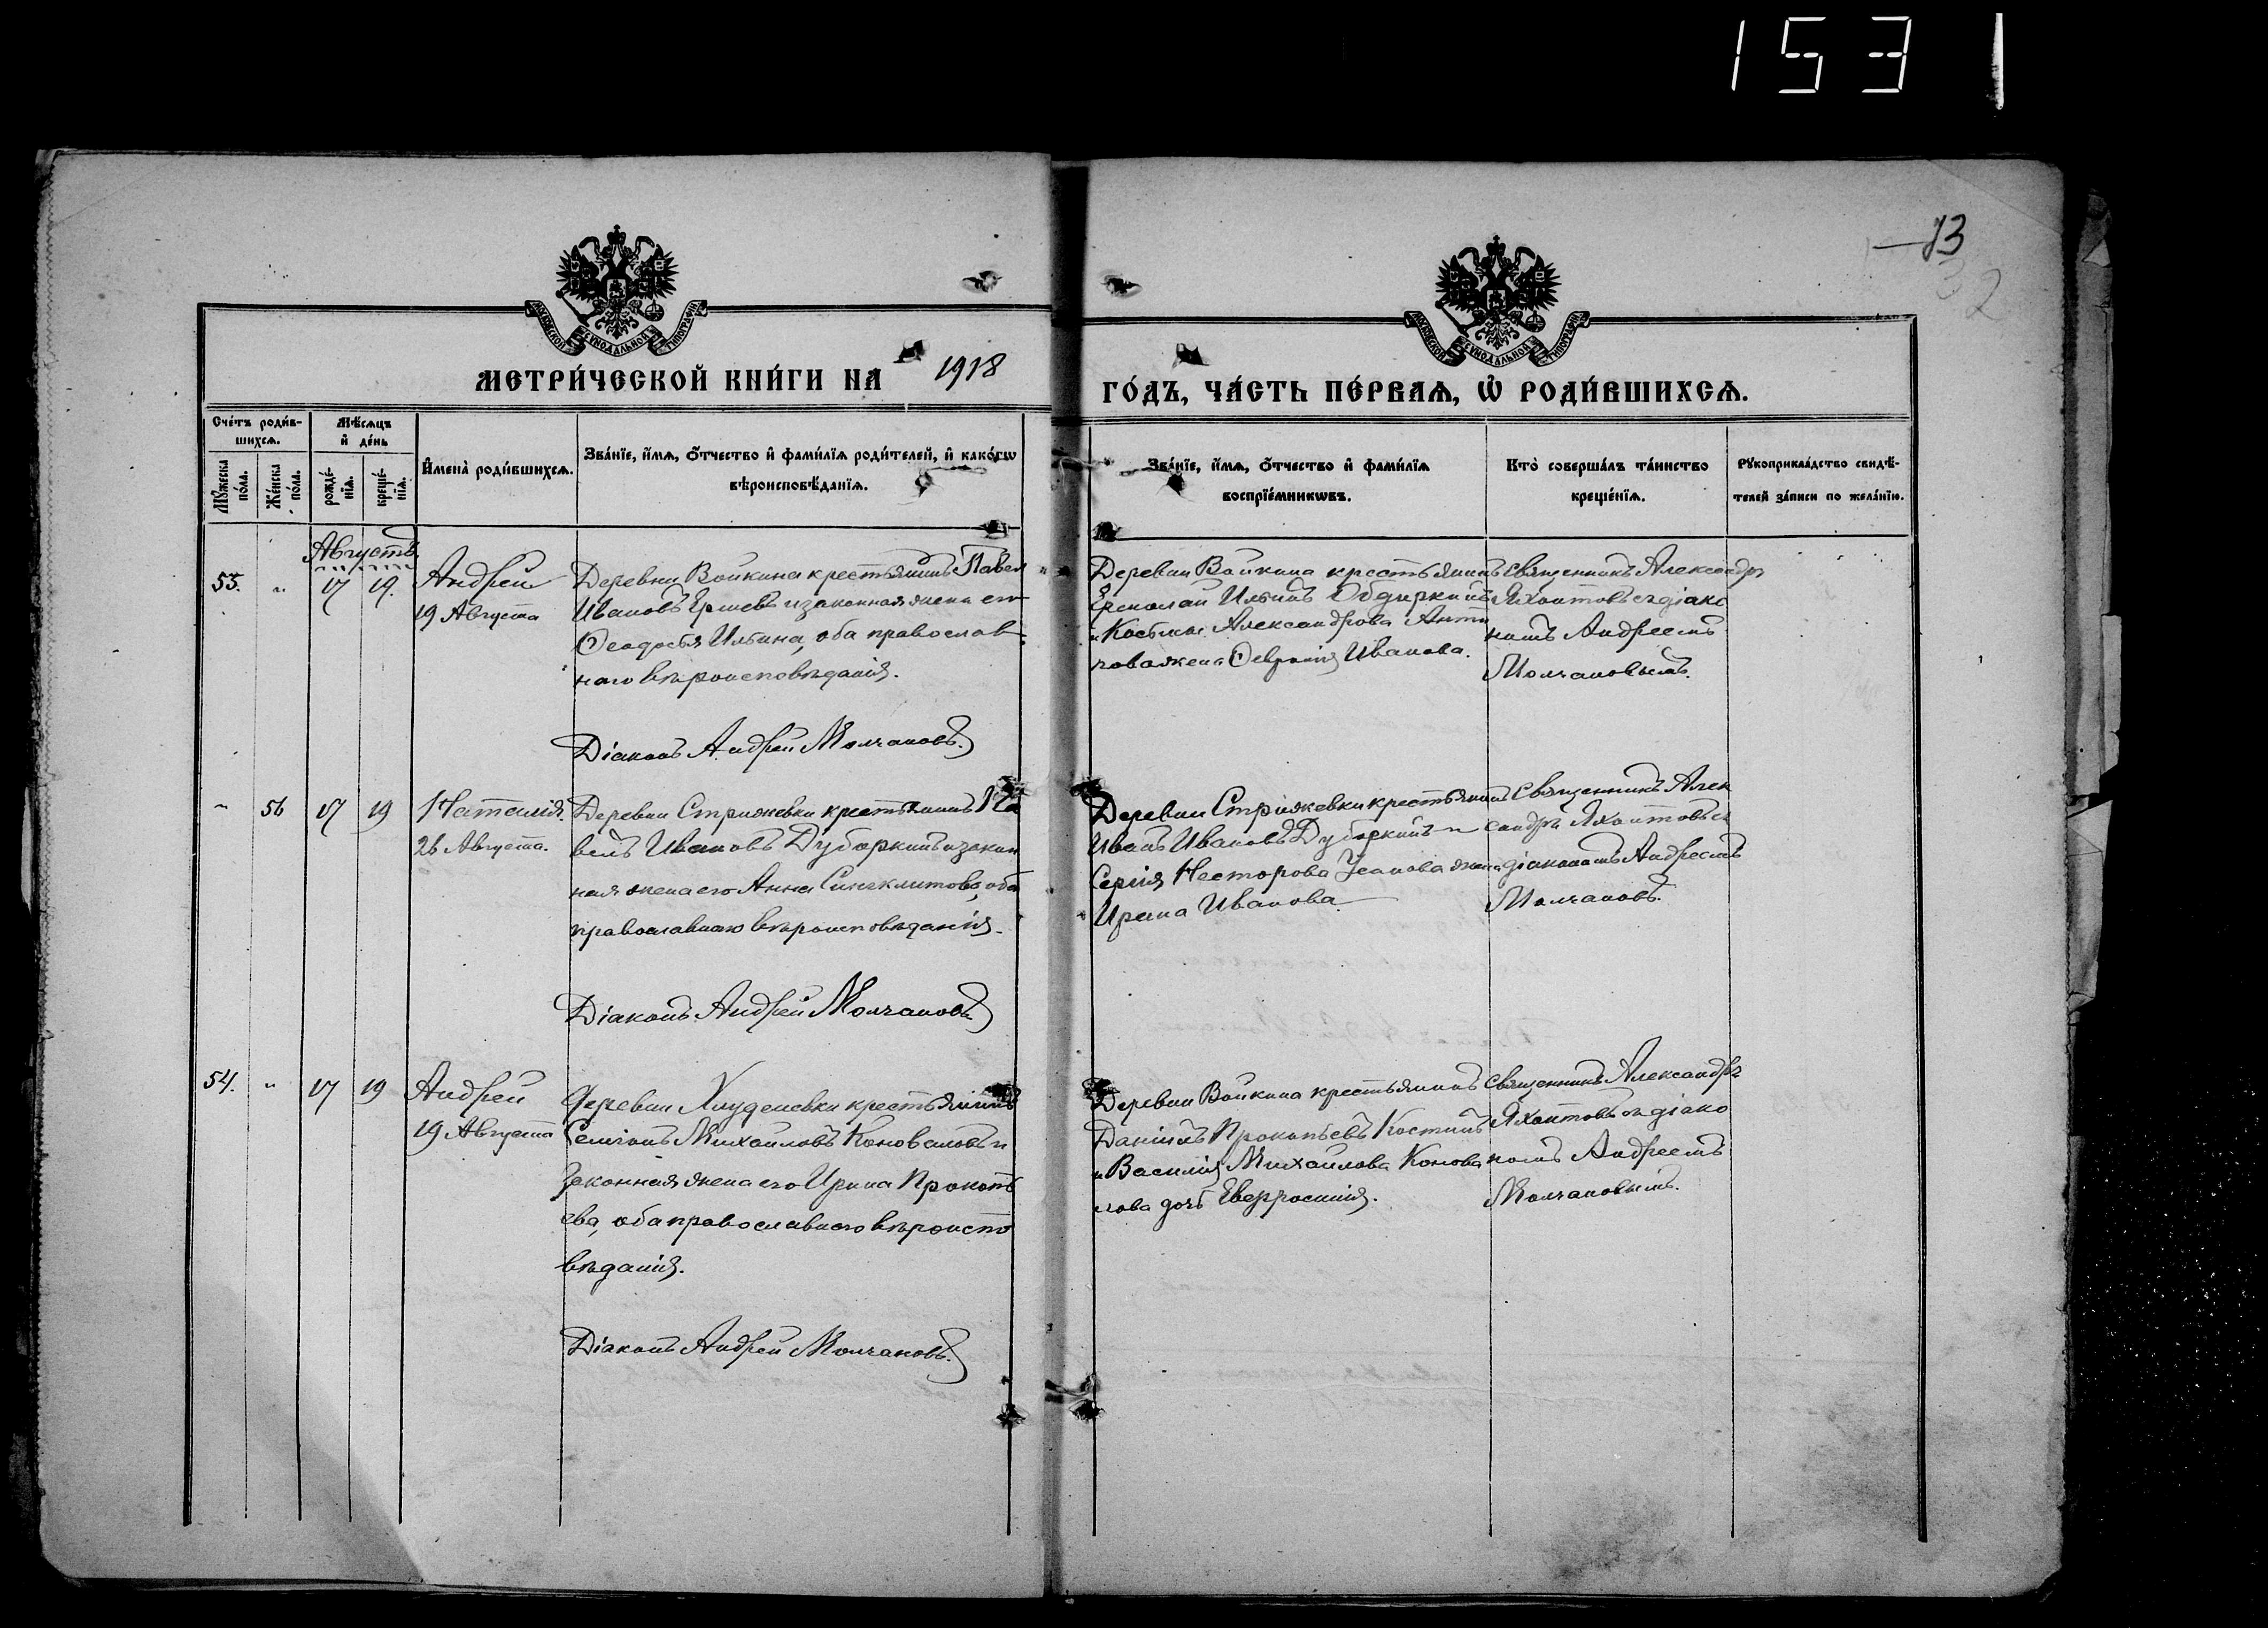 1531
13
32
МОСКОВСКОЙ СѴНОДАЛЬНОЙ ТИПОГРАФІИ
МОСКОВСКОЙ СѴНОДАЛЬНОЙ ТИПОГРАФІИ
МЕТРИ́ЧЕСКОЙ КНИ́ГИ НА 1918
ГО́ДЪ, ЧА́СТЬ ПЕ́РВАѦ, Ѽ РОДИ́ВШИХСѦ.
Сче́тъ роди́в-
шихсѧ.
Мꙋ́жеска по́ла.
Же́нска по́ла.
Мѣ́сѧцъ
и҆ де́нь
рожде́-
нїѧ.
креще́-
нїѧ.
И҆мена̀ роди́вшихсѧ.
Зва́нїе, и҆́мѧ, ѻ҆́тчество и҆ фами́лїѧ роди́телей, и҆ како́гѡ
вѣроисповѣ́данїѧ.
Зва́нїе, и҆́мѧ, ѻ҆́тчество и҆ фами́лїѧ
воспрїе́мникѡвъ.
Кто̀ соверша́лъ та́инство
креще́нїѧ.
Рꙋкоприкла́дство свидѣ́-
телей за́писи по жела́нїю.
Августъ
53. " 17 19. Андрей
19 Августа
Деревни Войкина крестьянинъ Павелъ
Ивановъ Ершевъ и законная жена его
Ѳеодосья Ильина, оба православ-
наго вѣроисповѣданія.
Діаконъ Андрей Молчановъ.
Деревни Войкина крестьянинъ
Ермолай Ильинъ Обдиркинъ
и Косьмы Александрова Анти
пова жена Ѳеврония Иванова.
Священникъ Александръ
Яхонтовъ съ діако
номъ Андреемъ
Молчановымъ.
" 56 17 19 Наталія.
26 Августа.
Деревни Стрижевки крестьянинъ Па
велъ Ивановъ Дуборкинъ и закон
ная жена его Анна Синклитова, оба
православнаго вѣроисповѣданія.
Діаконъ Андрей Молчановъ
Деревни Стрижевки крестьянинъ
Иванъ Ивановъ Дуборкинъ и
Сергія Несторова Усанова жена
Ирина Иванова
Священникъ Алек
сандръ Яхонтовъ съ
діакономъ Андреемъ
Молчановъ.
54. " 17 19 Андрей
19 Августа
Деревни Хлуденевки крестьянинъ
Симеонъ Михайловъ Коноваловъ и
законная жена его Ирина Прокопь
ева, оба православнаго вѣроиспо
вѣданія.
Діаконъ Андрей Молчановъ.
Деревни Войкина крестьянинъ
Даніилъ Прокопьевъ Костинъ
и Василія Михайлова Конова
лова дочь Евфросинія.
Священникъ Александръ
Яхонтовъ съ діако
номъ Андреемъ
Молчановымъ.